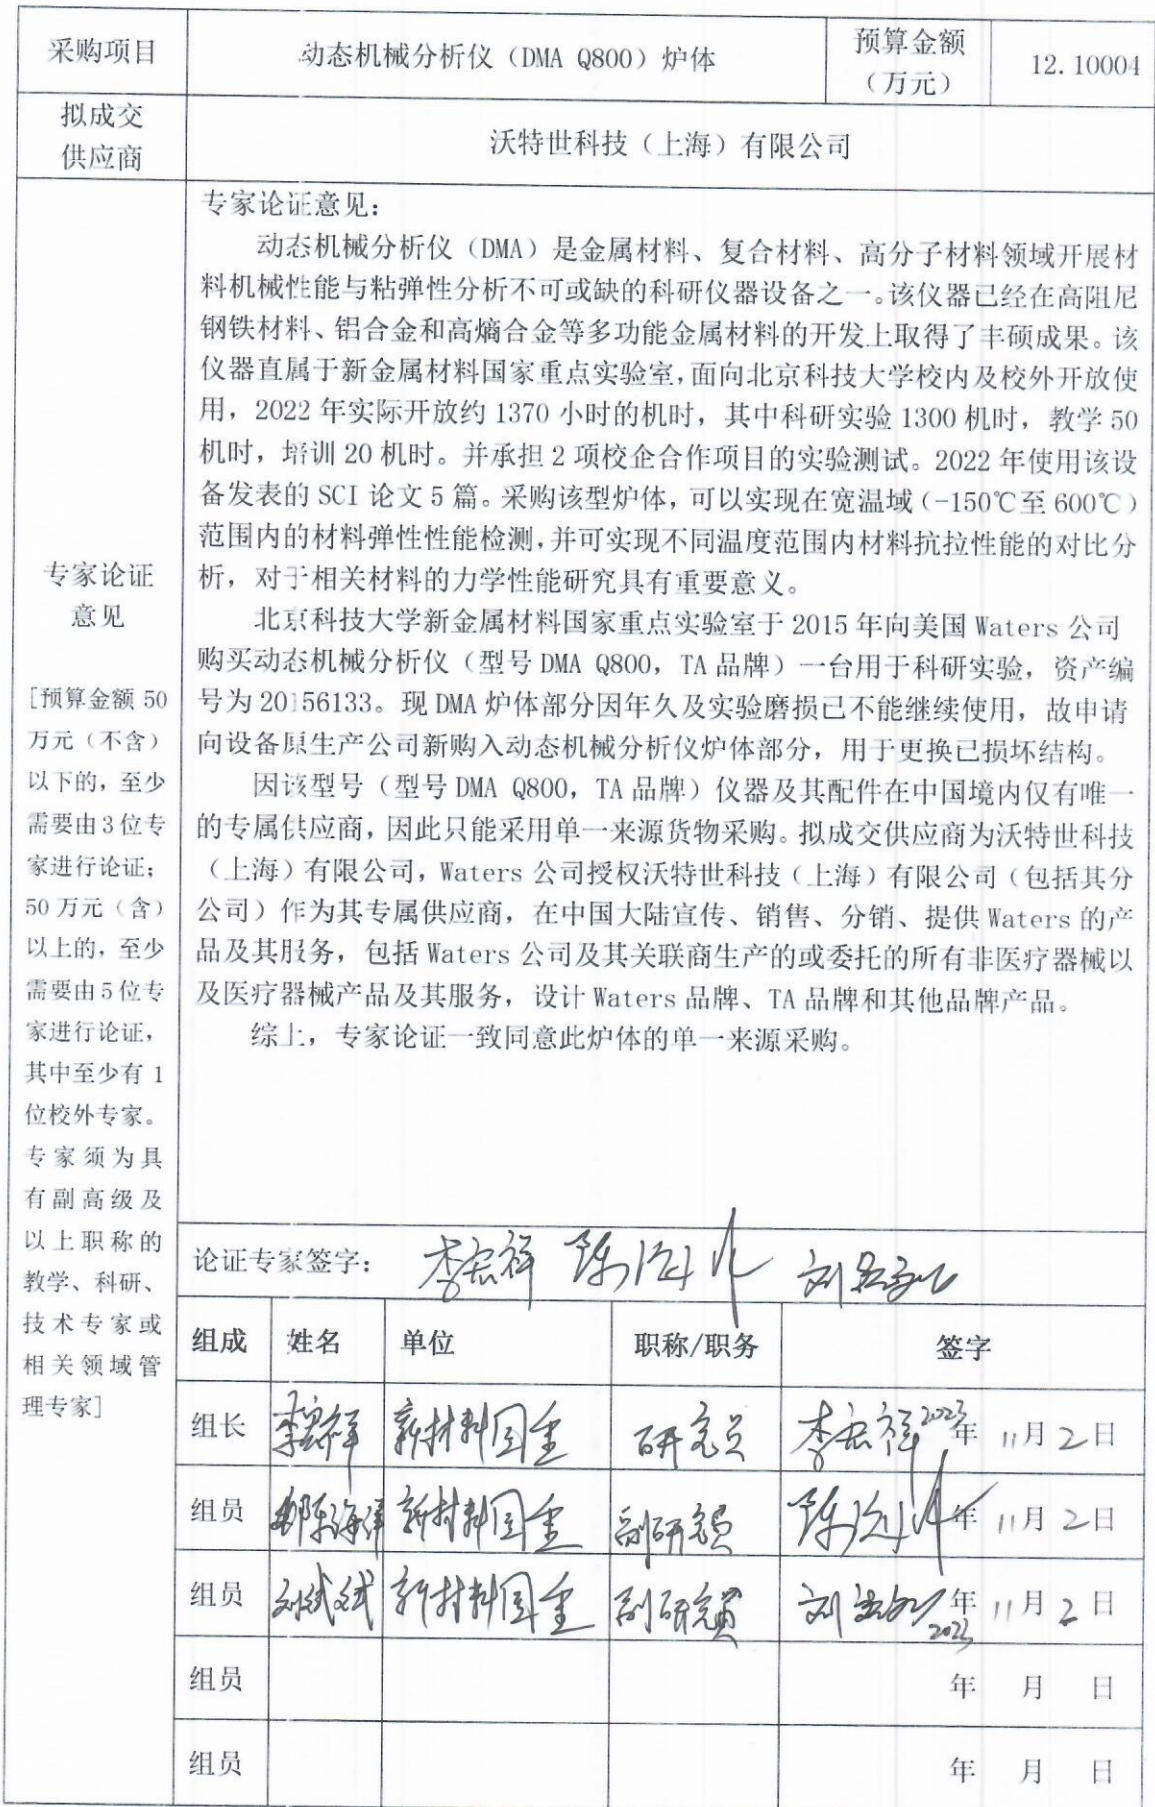 采购项目
动态机械分析仪（DMA Q800）炉体
预算金额
（万元）
12.10004
拟成交
供应商
沃特世科技（上海）有限公司
专家论证
意见
[预算金额 50
万元（不含）
以下的，至少
需要由 3 位专
家进行论证；
50 万元（含）
以上的，至少
需要由 5 位专
家进行论证，
其中至少有 1
位校外专家。
专家须为具
有副高级及
以上职称的
教学、科研、
技术专家或
相关领域管
理专家]
专家论证意见：
动态机械分析仪（DMA）是金属材料、复合材料、高分子材料领域开展材
料机械性能与粘弹性分析不可或缺的科研仪器设备之一。该仪器已经在高阻尼
钢铁材料、铝合金和高熵合金等多功能金属材料的开发上取得了丰硕成果。该
仪器直属于新金属材料国家重点实验室，面向北京科技大学校内及校外开放使
用，2022 年实际开放约 1370 小时的机时，其中科研实验 1300 机时，教学 50
机时，培训 20 机时。并承担 2 项校企合作项目的实验测试。2022 年使用该设
备发表的 SCI 论文 5 篇。采购该型炉体，可以实现在宽温域（-150℃至 600℃）
范围内的材料弹性性能检测，并可实现不同温度范围内材料抗拉性能的对比分
析，对于相关材料的力学性能研究具有重要意义。
北京科技大学新金属材料国家重点实验室于 2015 年向美国 Waters 公司
购买动态机械分析仪（型号 DMA Q800，TA 品牌）一台用于科研实验，资产编
号为 20156133。现 DMA 炉体部分因年久及实验磨损已不能继续使用，故申请
向设备原生产公司新购入动态机械分析仪炉体部分，用于更换已损坏结构。
因该型号（型号 DMA Q800，TA 品牌）仪器及其配件在中国境内仅有唯一
的专属供应商，因此只能采用单一来源货物采购。拟成交供应商为沃特世科技
（上海）有限公司，Waters 公司授权沃特世科技（上海）有限公司（包括其分
公司）作为其专属供应商，在中国大陆宣传、销售、分销、提供 Waters 的产
品及其服务，包括 Waters 公司及其关联商生产的或委托的所有非医疗器械以
及医疗器械产品及其服务，设计 Waters 品牌、TA 品牌和其他品牌产品。
综上，专家论证一致同意此炉体的单一来源采购。
论证专家签字： 李宏祥 陈海
组成 姓名 单位 职称/职务 签字
组长 李宏祥 新材料国重 研究员 李宏祥 2023年 11月 2日
组员 陈海洋 新材料国重 副研究员 年 11月 2日
组员 刘斌斌 新材料国重 副研究员 刘斌斌 2023年 11月 2日
组员 年 月 日
组员 年 月 日